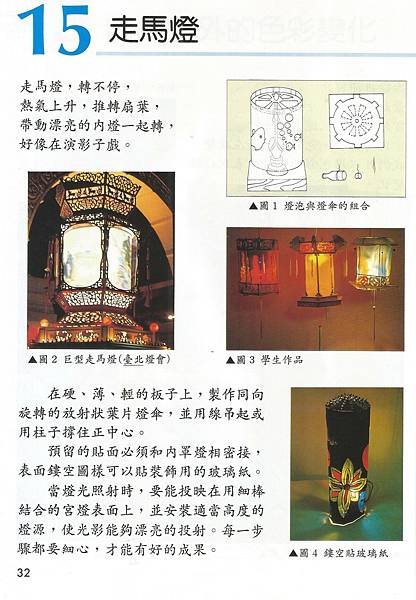 15 走馬燈
走馬燈，轉不停，
熱氣上升，推轉扇葉，
帶動漂亮的內燈一起轉，
好像在演影子戲。
▲圖1 燈泡與燈傘的組合
▲圖2 巨型走馬燈(臺北燈會)
▲圖3 學生作品
在硬、薄、輕的板子上，製作同向
旋轉的放射狀葉片燈傘，並用線吊起或
用柱子撐住正中心。
預留的貼面必須和內罩燈相密接，
表面鏤空圖樣可以貼裝飾用的玻璃紙。
當燈光照射時，要能投映在用細棒
結合的宮燈表面上，並安裝適當高度的
燈源，使光影能夠漂亮的投射。每一步
驟都要細心，才能有好的成果。
▲圖4 鏤空貼玻璃紙
32